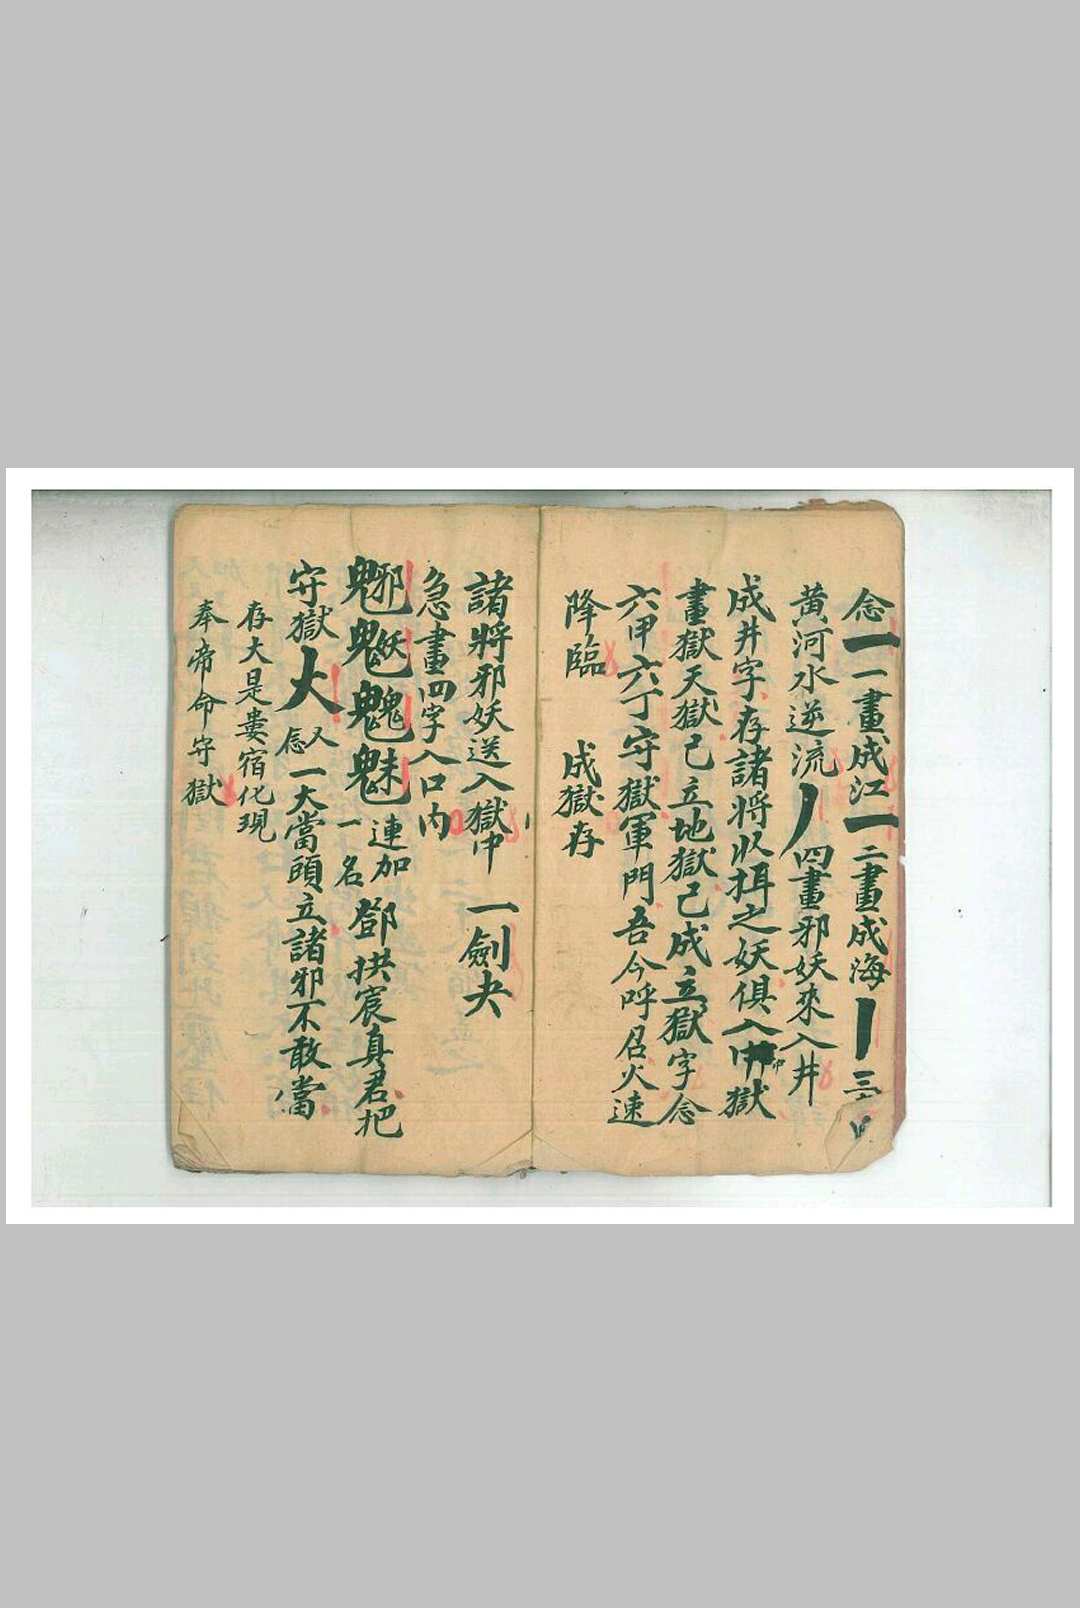 念一一畫成江一二畫成海丨三
黃河水逆流丿四畫邪妖來入井
成井字存諸將以揖之妖俱入中獄
畫獄天獄已立地獄已成立獄字念
六甲六丁守獄軍門吾今呼召火速
降臨 成獄存
諸將邪妖送入獄中 一劍夬
急畫四字入口內
連加一名鄧拱宸真君把
守獄大又念一大當頭立諸邪不敢當
存大是婁宿化現
奉帝命守獄